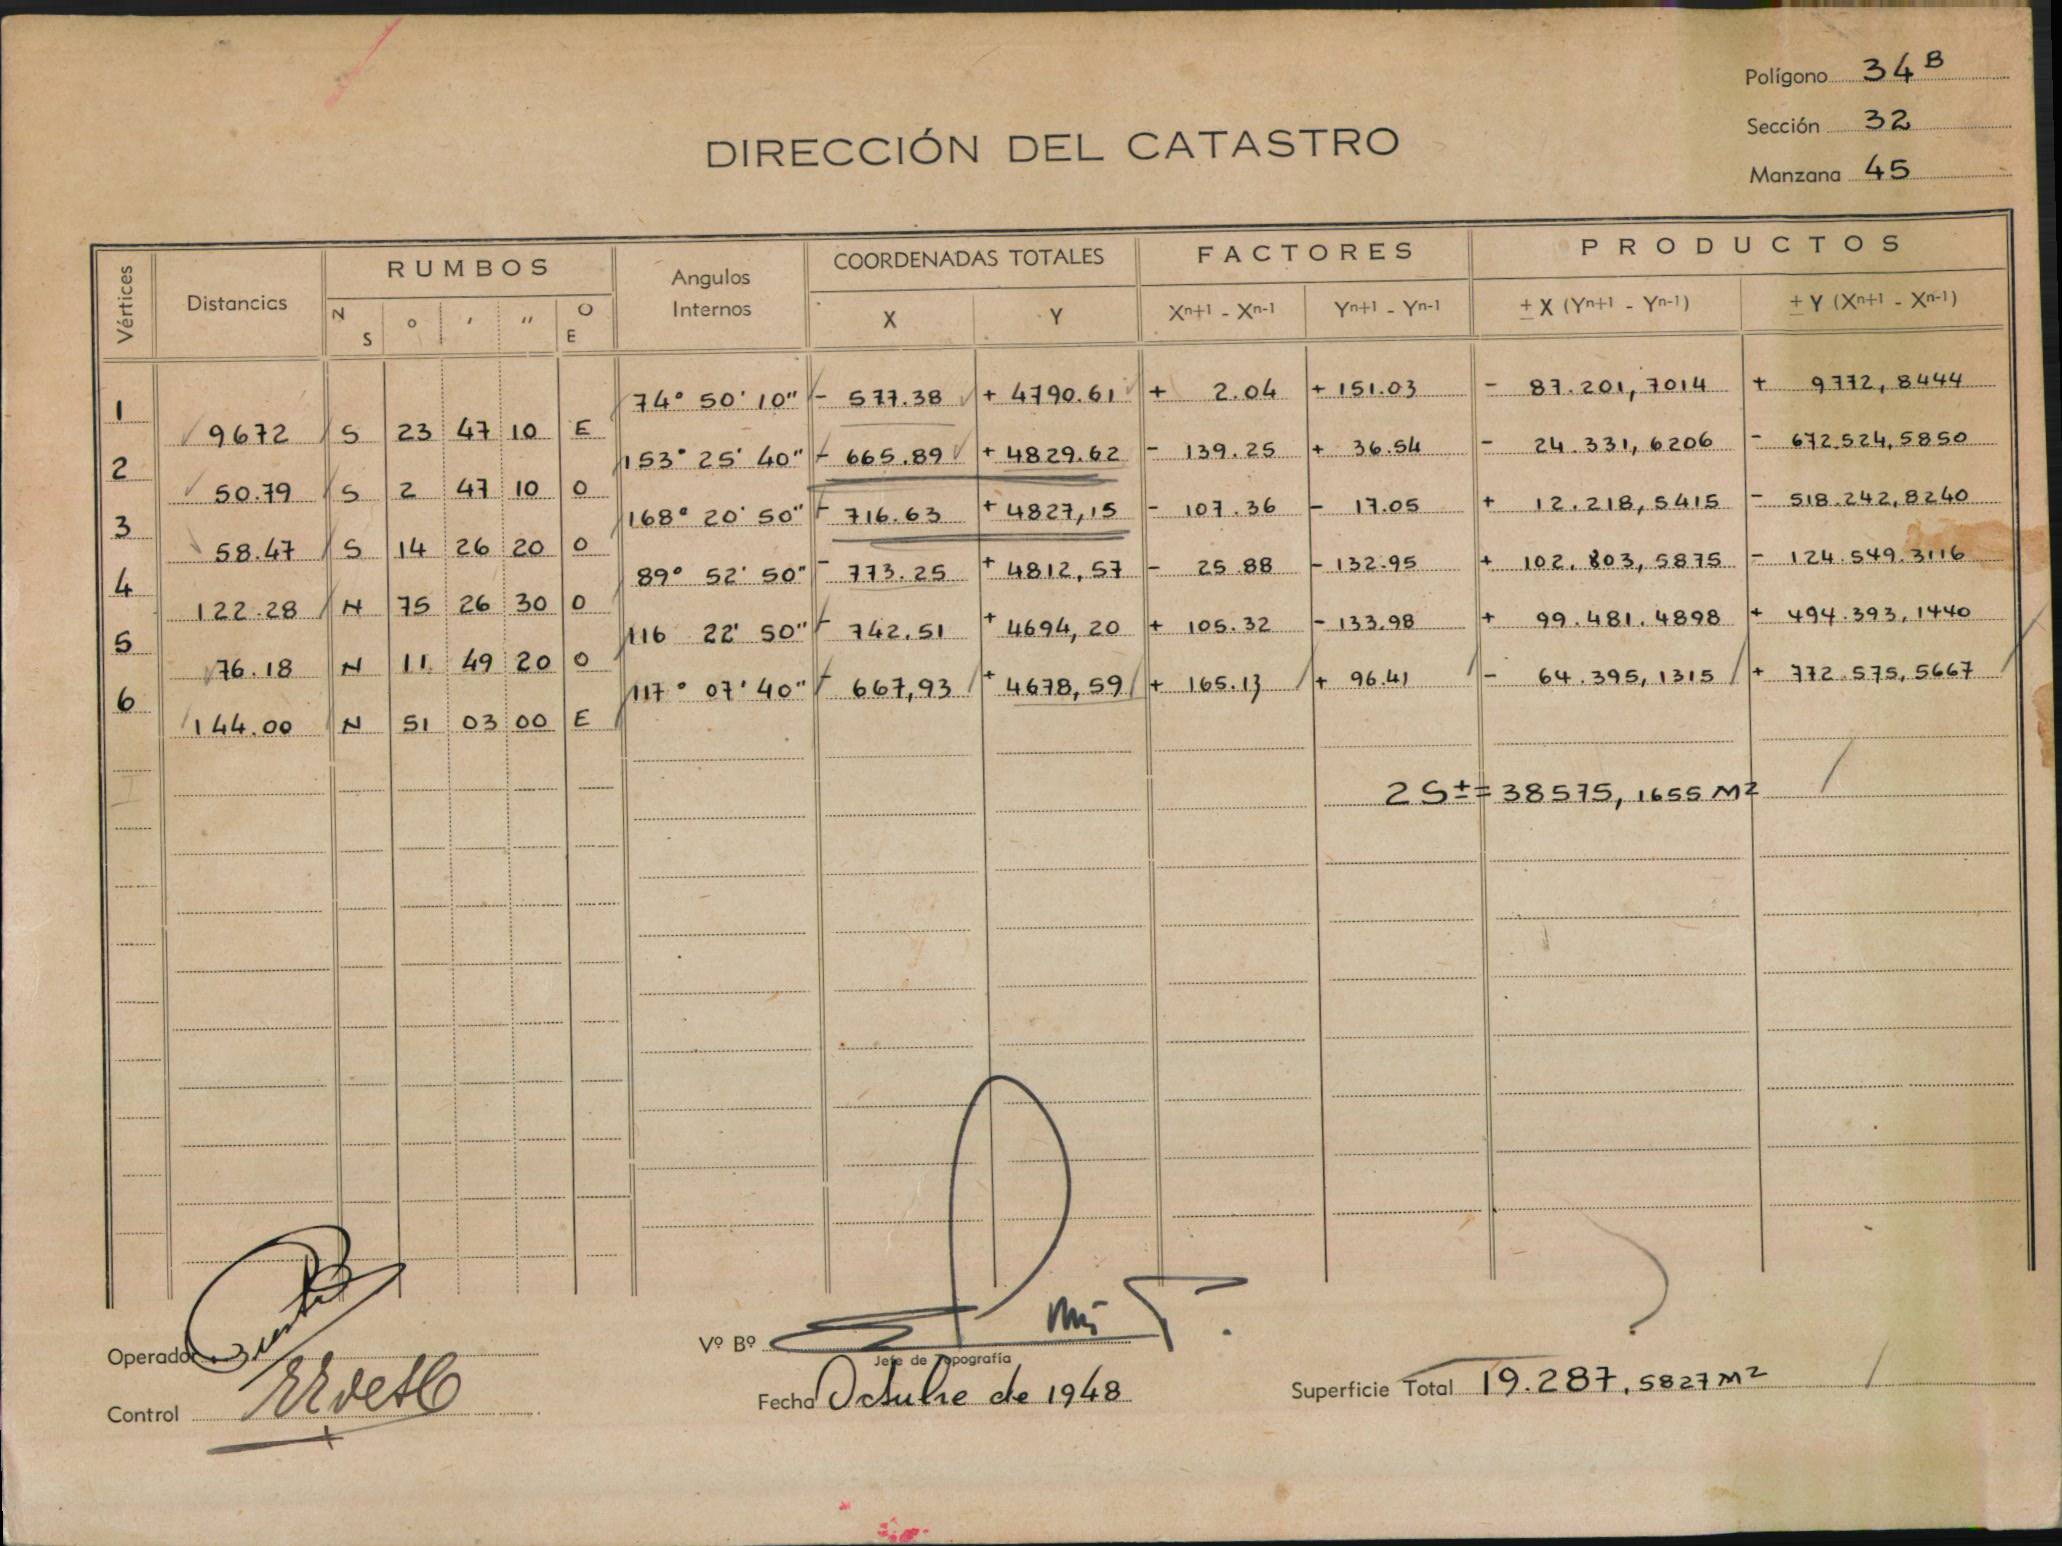 Polígono 34 B
Sección 32
DIRECCIÓN DEL CATASTRO
Manzana 45
Vértices
Distancias
RUMBOS
N S
° ' "
O E
Angulos Internos
COORDENADAS TOTALES
X Y
FACTORES
Xn+1 - Xn-1 Yn+1 - Yn-1
PRODUCTOS
± X (Yn+1 - Yn-1) ± Y (Xn+1 - Xn-1)
1 74° 50' 10" - 577.38 + 4790.61 + 2.04 + 151.03 - 87.201,7014 + 9772,8444
9672 S 23 47 10 E
2 153° 25' 40" - 665.89 + 4829.62 - 139.25 + 36.54 - 24.331,6206 - 672.524,5850
50.79 S 2 47 10 O
3 168° 20' 50" - 716.63 + 4827,15 - 107.36 - 17.05 + 12.218,5415 - 518.242,8240
58.47 S 14 26 20 O
4 89° 52' 50" - 773.25 + 4812,57 - 25.88 - 132.95 + 102.803,5875 - 124.549.3116
122.28 N 75 26 30 O
5 116 22' 50" - 742.51 + 4694,20 + 105.32 - 133.98 + 99.481.4898 + 494.393,1440
76.18 N 11 49 20 O
6 117° 07' 40" - 667,93 + 4678,59 + 165.13 + 96.41 - 64.395,1315 + 772.575,5667
144.00 N 51 03 00 E
2 S ± = 38575,1655 M2
Operador
Vº Bº
Jefe de Topografía
Control
Fecha Octubre de 1948
Superficie Total 19.287,5827 M2